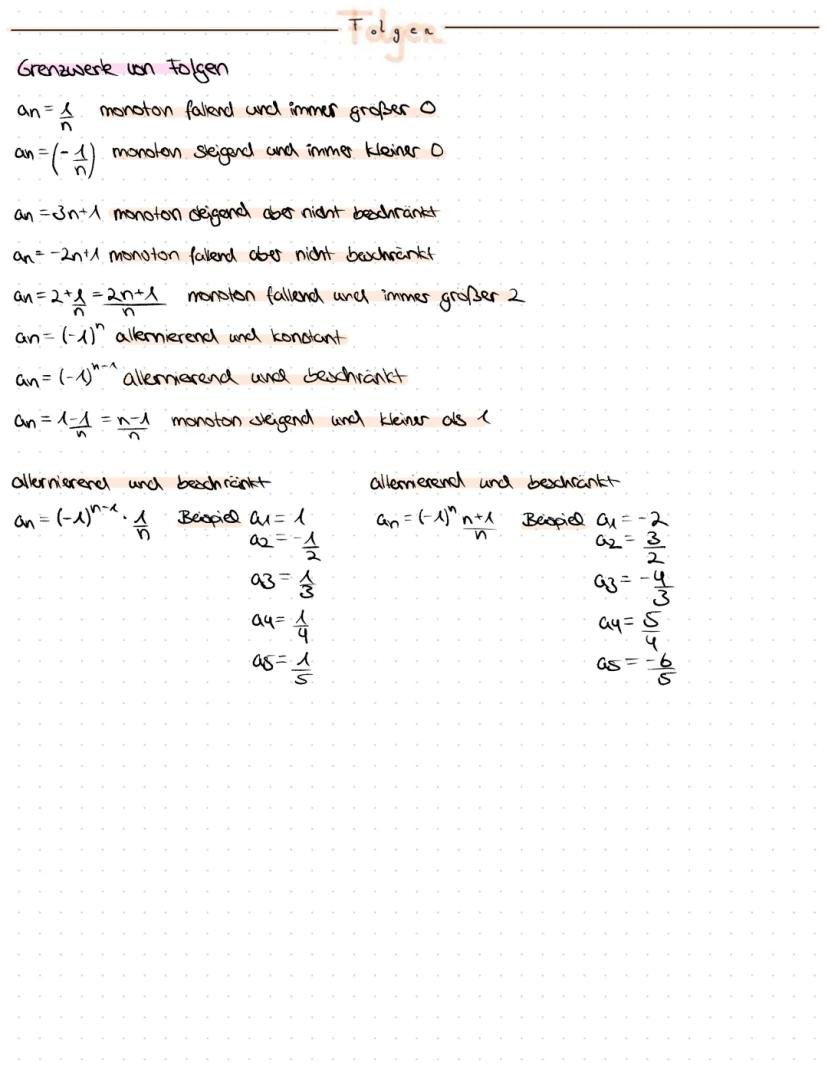 Folgen
Grenzwerk von Folgen
an = 1/n monoton fallend und immer größer 0
an = (-1/n) monoton steigend und immer kleiner 0
an = 3n+1 monoton steigend aber nicht beschränkt
an = -2n+1 monoton fallend aber nicht beschränkt
an = 2+1/n = 2n+1/n monoton fallend und immer größer 2
an = (-1)^n alternierend und konstant
an = (-1)^n-1 alternierend und beschränkt
an = 1-1/n = n-1/n monoton steigend und kleiner als 1
alternierend und beschränkt
an = (-1)^n-1 · 1/n Beispiel a1 = 1
a2 = -1/2
a3 = 1/3
a4 = 1/4
a5 = 1/5
alternierend und beschränkt
an = (-1)^n n+1/n Beispiel a1 = -2
a2 = 3/2
a3 = -4/3
a4 = 5/4
a5 = -6/5